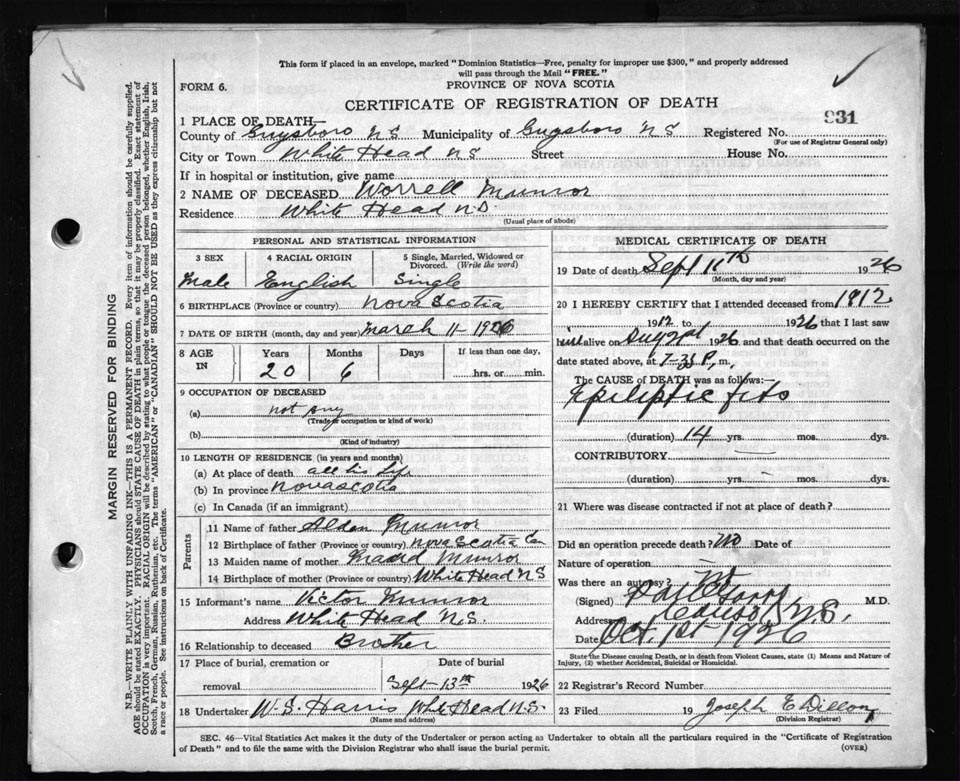 This form if placed in an envelope, marked "Dominion Statistics—Free, penalty for improper use $300," and properly addressed
will pass through the Mail "FREE."
FORM 6.
PROVINCE OF NOVA SCOTIA
CERTIFICATE OF REGISTRATION OF DEATH
931
1 PLACE OF DEATH—
County of Guysboro N S Municipality of Guysboro N S Registered No.
(For use of Registrar General only)
City or Town White Head N S Street House No.
If in hospital or institution, give name
2 NAME OF DECEASED Worrell Munror
Residence White Head N.S.
(Usual place of abode)
PERSONAL AND STATISTICAL INFORMATION
3 SEX 4 RACIAL ORIGIN 5 Single, Married, Widowed or Divorced. (Write the word)
Male English Single
6 BIRTHPLACE (Province or country) Nova Scotia
7 DATE OF BIRTH (month, day and year) March 11 1926
8 AGE IN Years Months Days If less than one day,
20 6 hrs. or min.
9 OCCUPATION OF DECEASED
(a) not any
(Trade, occupation or kind of work)
(b)
(Kind of industry)
10 LENGTH OF RESIDENCE (in years and months)
(a) At place of death all his life
(b) In province Nova Scotia
(c) In Canada (if an immigrant)
Parents
11 Name of father Alden Munror
12 Birthplace of father (Province or country) Nova Scotia Can
13 Maiden name of mother Munror
14 Birthplace of mother (Province or country) White Head N S
15 Informant's name Victor Munror
Address White Head N.S.
16 Relationship to deceased Brother
17 Place of burial, cremation or Date of burial
removal Sept 13th 1926
18 Undertaker W. S. Harris White Head N.S.
(Name and address)
MEDICAL CERTIFICATE OF DEATH
19 Date of death Sept 11th 1926
(Month, day and year)
20 I HEREBY CERTIFY that I attended deceased from 1912
1912 to 1926 that I last saw
him alive on Aug 1926 and that death occurred on the
date stated above, at P. m.
The CAUSE of DEATH was as follows:—
Epileptic fits
(duration) 14 yrs. mos. dys.
CONTRIBUTORY
(duration) yrs. mos. dys.
21 Where was disease contracted if not at place of death?
Did an operation precede death? No Date of
Nature of operation
Was there an autopsy? No
(Signed) M.D.
Address Canso N.S.
Date Oct. 1st 1926
State the Disease causing Death, or in death from Violent Causes, state (1) Means and Nature of
Injury, (2) whether Accidental, Suicidal or Homicidal.
22 Registrar's Record Number
23 Filed 19 Joseph E Dillon
(Division Registrar)
SEC. 46—Vital Statistics Act makes it the duty of the Undertaker or person acting as Undertaker to obtain all the particulars required in the "Certificate of Registration
of Death" and to file the same with the Division Registrar who shall issue the burial permit.
(OVER)
MARGIN RESERVED FOR BINDING
N.B.—WRITE PLAINLY WITH UNFADING INK—THIS IS A PERMANENT RECORD. Every item of information should be carefully supplied.
AGE should be stated EXACTLY. PHYSICIANS should STATE CAUSE OF DEATH in plain terms, so that it may be properly classified. Exact statement of
OCCUPATION is very important. RACIAL ORIGIN will be described by stating to what people or tongue the deceased person belonged, whether English, Irish,
Scotch, French, German, Russian, Ruthenian, etc. The terms "AMERICAN" or "CANADIAN" SHOULD NOT BE USED as they express citizenship but not
a race or people. See instructions on back of Certificate.